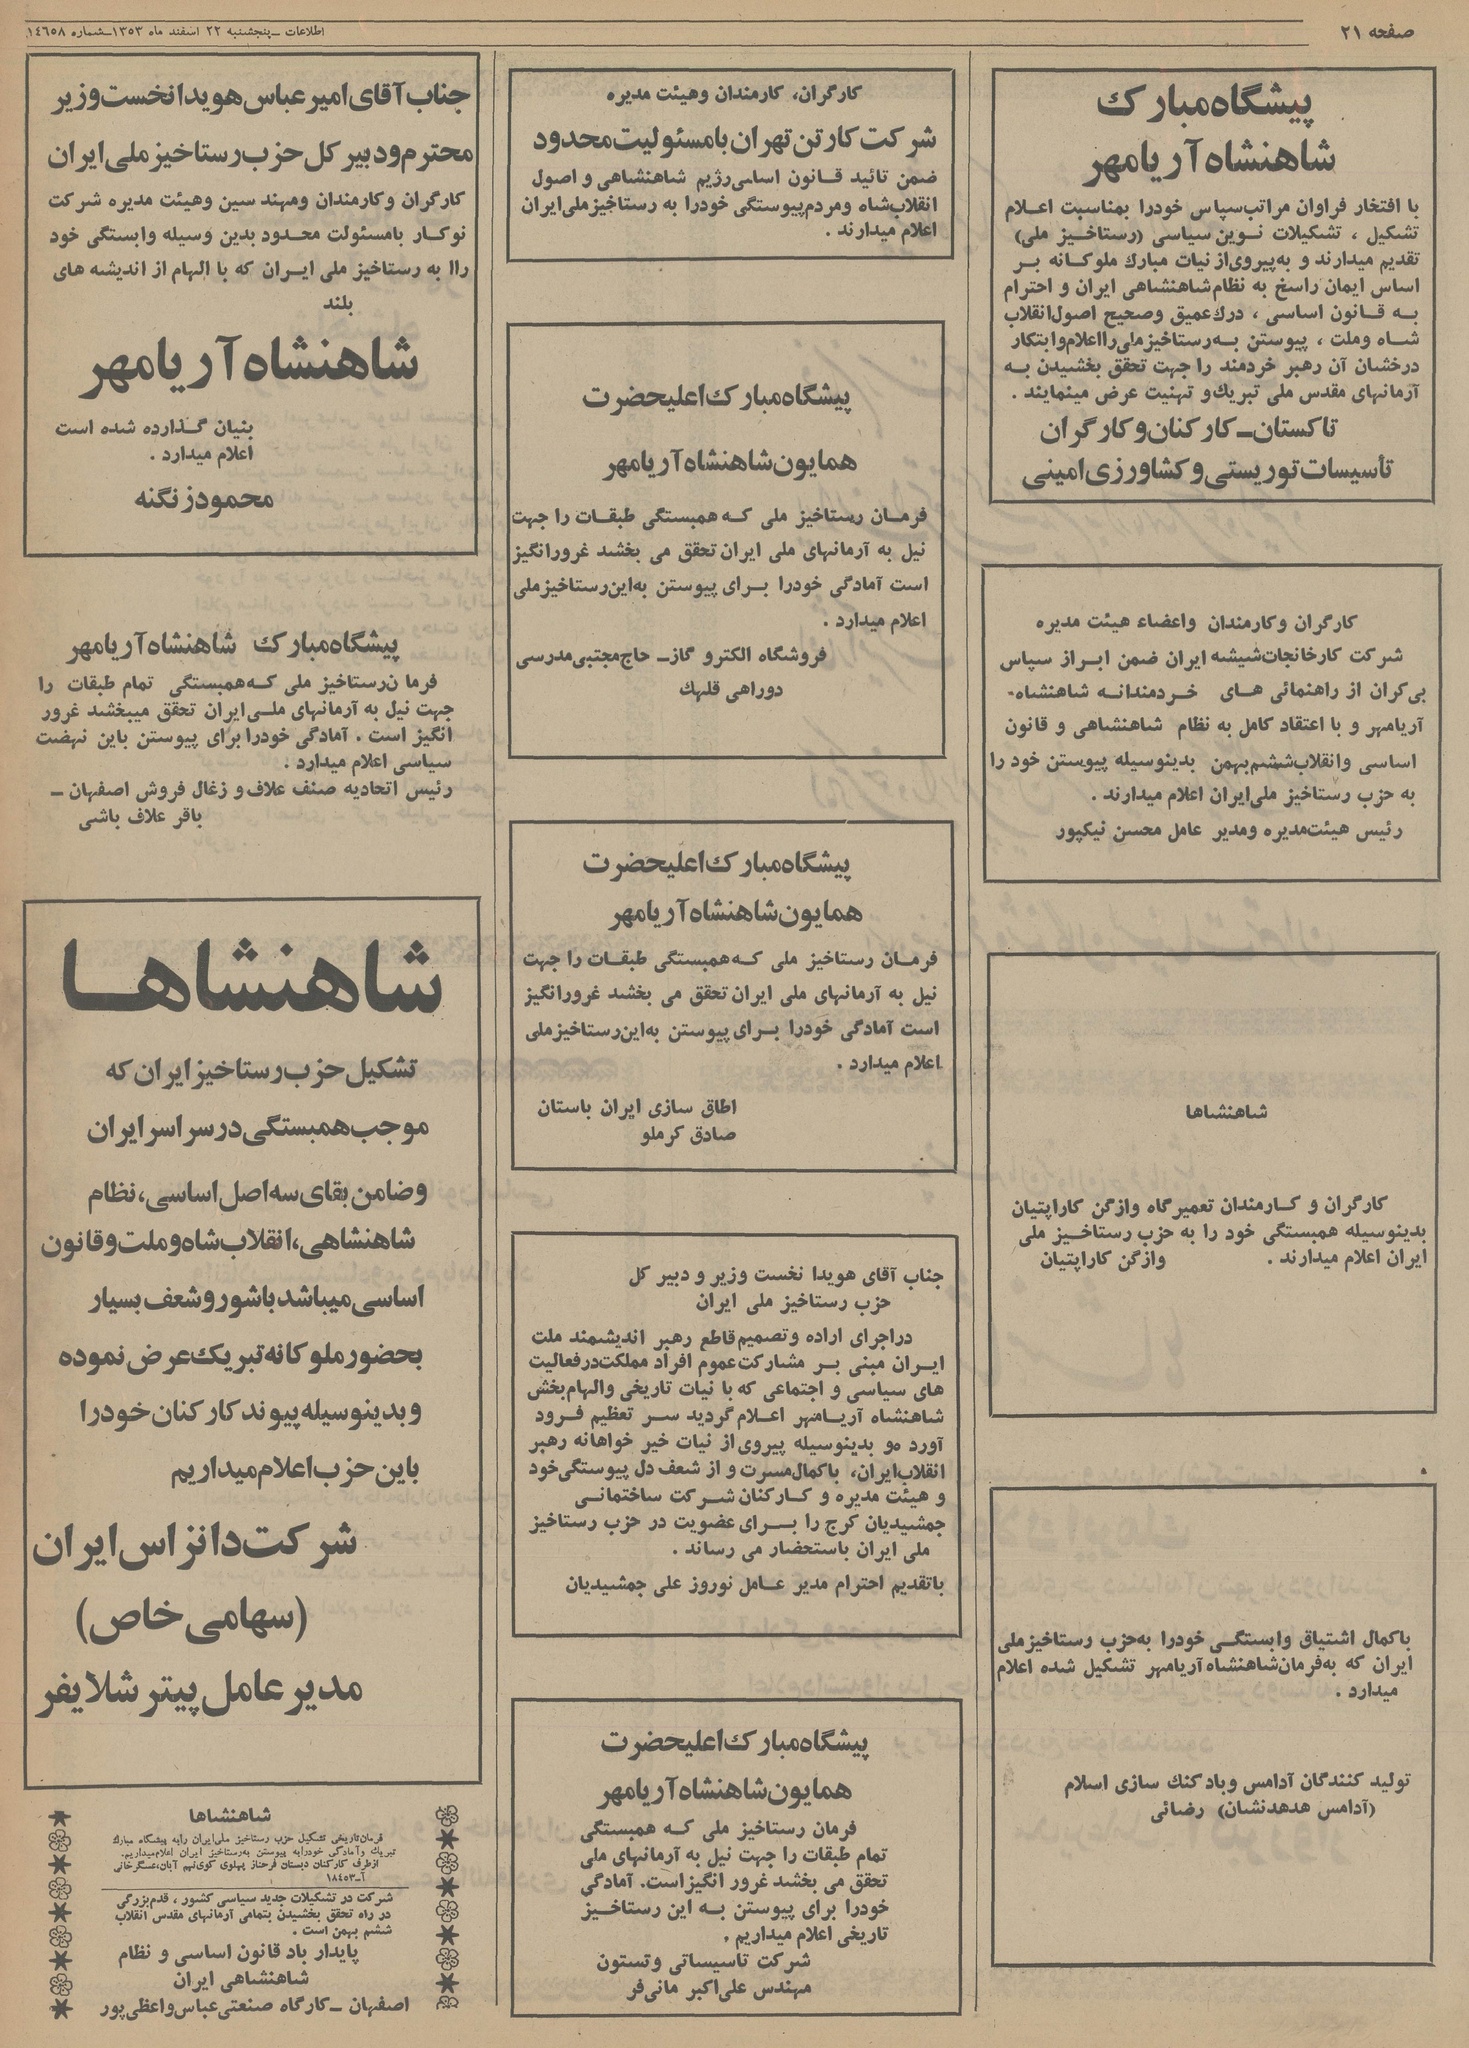 صفحه ۲۱
اطلاعات ـ پنجشنبه ۲۲ اسفند ماه ۱۳۵۳ ـ شماره ۱٤٦٥۸
پیشگاه مبارک
شاهنشاه آریامهر
با افتخار فراوان مراتب سپاس خودرا بمناسبت اعلام
تشکیل ، تشکیلات نوین سیاسی (رستاخیز ملی)
تقدیم میدارند و به پیروی از نیات مبارك ملوکانه بر
اساس ایمان راسخ به نظام شاهنشاهی ایران و احترام
به قانون اساسی ، درك عمیق وصحیح اصول انقلاب
شاه وملت ، پیوستن به رستاخیز ملی را اعلام وابتکار
درخشان آن رهبر خردمند را جهت تحقق بخشیدن به
آرمانهای مقدس ملی تبریك و تهنیت عرض مینمایند .
تاکستان ـ کارکنان و کارگران
تأسیسات توریستی و کشاورزی امینی
کارگران وکارمندان واعضاء هیئت مدیره
شرکت کارخانجات شیشه ایران ضمن ابراز سپاس
بی کران از راهنمائی های خردمندانه شاهنشاه-
آریامهر و با اعتقاد کامل به نظام شاهنشاهی و قانون
اساسی وانقلاب ششم بهمن بدینوسیله پیوستن خود را
به حزب رستاخیز ملی ایران اعلام میدارند .
رئیس هیئت مدیره ومدیر عامل محسن نیکپور
شاهنشاها
کارگران و کارمندان تعمیرگاه وازگن کاراپتیان
بدینوسیله همبستگی خود را به حزب رستاخیز ملی
ایران اعلام میدارند . وازگن کاراپتیان
باکمال اشتیاق وابستگی خودرا به حزب رستاخیز ملی
ایران که به فرمان شاهنشاه آریامهر تشکیل شده اعلام
میدارد .
تولید کنندگان آدامس وبادکنك سازی اسلام
(آدامس هدهدنشان) رضائی
کارگران، کارمندان وهیئت مدیره
شرکت کارتن تهران بامسئولیت محدود
ضمن تائید قانون اساسی رژیم شاهنشاهی و اصول
انقلاب شاه ومردم پیوستگی خودرا به رستاخیز ملی ایران
اعلام میدارند .
پیشگاه مبارک اعلیحضرت
همایون شاهنشاه آریامهر
فرمان رستاخیز ملی که همبستگی طبقات را جهت
نیل به آرمانهای ملی ایران تحقق می بخشد غرورانگیز
است آمادگی خودرا برای پیوستن به این رستاخیز ملی
اعلام میدارد .
فروشگاه الکترو گاز ـ حاج مجتبی مدرسی
دوراهی قلهك
پیشگاه مبارک اعلیحضرت
همایون شاهنشاه آریامهر
فرمان رستاخیز ملی که همبستگی طبقات را جهت
نیل به آرمانهای ملی ایران تحقق می بخشد غرورانگیز
است آمادگی خودرا برای پیوستن به این رستاخیز ملی
اعلام میدارد .
اطاق سازی ایران باستان
صادق کرملو
جناب آقای هویدا نخست وزیر و دبیر کل
حزب رستاخیز ملی ایران
دراجرای اراده وتصمیم قاطع رهبر اندیشمند ملت
ایران مبنی بر مشارکت عموم افراد مملکت درفعالیت
های سیاسی و اجتماعی که با نیات تاریخی والهام بخش
شاهنشاه آریامهر اعلام گردید سر تعظیم فرود
آورد مو بدینوسیله پیروی از نیات خیر خواهانه رهبر
انقلاب ایران، باکمال مسرت و از شعف دل پیوستگی خود
و هیئت مدیره و کارکنان شرکت ساختمانی
جمشیدیان کرج را برای عضویت در حزب رستاخیز
ملی ایران باستحضار می رساند .
باتقدیم احترام مدیر عامل نوروز علی جمشیدیان
پیشگاه مبارک اعلیحضرت
همایون شاهنشاه آریامهر
فرمان رستاخیز ملی که همبستگی
تمام طبقات را جهت نیل به آرمانهای ملی
تحقق می بخشد غرور انگیز است. آمادگی
خودرا برای پیوستن به این رستاخیز
تاریخی اعلام میداریم .
شرکت تاسیساتی وتستون
مهندس علی اکبر مانی فر
جناب آقای امیر عباس هویدا نخست وزیر
محترم ودبیر کل حزب رستاخیز ملی ایران
کارگران وکارمندان ومهند سین وهیئت مدیره شرکت
نوکار بامسئولت محدود بدین وسیله وابستگی خود
راا به رستاخیز ملی ایران که با الهام از اندیشه های
بلند
شاهنشاه آریامهر
بنیان گذارده شده است
اعلام میدارد .
محمود زنگنه
پیشگاه مبارک شاهنشاه آریامهر
فرما ن رستاخیز ملی که همبستگی تمام طبقات را
جهت نیل به آرمانهای ملی ایران تحقق میبخشد غرور
انگیز است . آمادگی خودرا برای پیوستن باین نهضت
سیاسی اعلام میدارد .
رئیس اتحادیه صنف علاف و زغال فروش اصفهان ـ
باقر علاف باشی
شاهنشاها
تشکیل حزب رستاخیز ایران که
موجب همبستگی در سراسر ایران
وضامن بقای سه اصل اساسی، نظام
شاهنشاهی، انقلاب شاه و ملت و قانون
اساسی میباشد باشور و شعف بسیار
بحضور ملوکانه تبریک عرض نموده
و بدینوسیله پیوند کارکنان خود را
باین حزب اعلام میداریم
شرکت دانزاس ایران
(سهامی خاص)
مدیر عامل پیتر شلایفر
شاهنشاها
فرمان تاریخی تشکیل حزب رستاخیز ملی ایران رابه پیشگاه مبارك
تبریك وآمادگی خودرابه پیوستن به رستاخیز ایران اعلام میداریم.
ازطرف کارکنان دبستان فرحناز پهلوی کوی نهم آبان، عسگرخانی
آ ـ ۱۸٤٥۳
شرکت در تشکیلات جدید سیاسی کشور ، قدم بزرگی
در راه تحقق بخشیدن بتمامی آرمانهای مقدس انقلاب
ششم بهمن است .
پایدار باد قانون اساسی و نظام
شاهنشاهی ایران
اصفهان ـ کارگاه صنعتی عباس واعظی پور